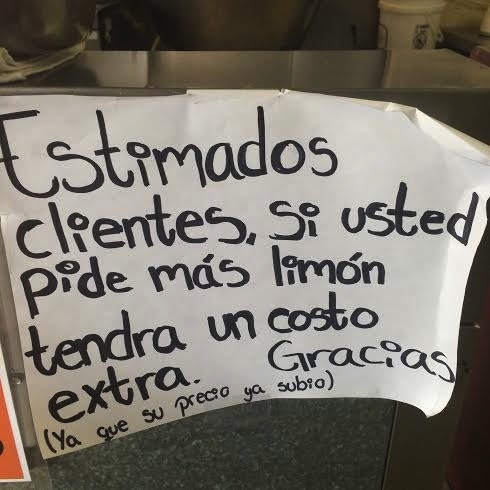 Estimados
clientes, si usted
pide más limón
tendra un costo
extra. Gracias
(Ya que su precio ya subio)